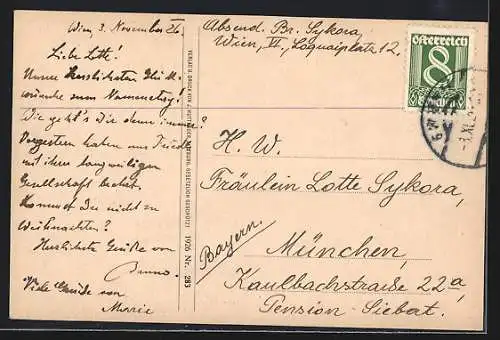 Wien, 3. November 26.
Liebe Lotte!
Unsere herzlichsten Glück-
wünsche zum Namenstag!
Wie geht's Dir denn immer?
Vorgestern haben uns
mit ihrer langweiligen
Gesellschaft
Kommst Du nicht zu
Weihnachten?
Herzlichste Grüße von
Bruno.
Viele Grüße von
Marie
1926 Nr. 283
Absend. Br. Sykora,
Wien, VI., Loquaiplatz 12.
Österreich
8
H. W.
Fräulein Lotte Sykora,
München,
Bayern.
Kaulbachstraße 22a,
Pension-Siebat.